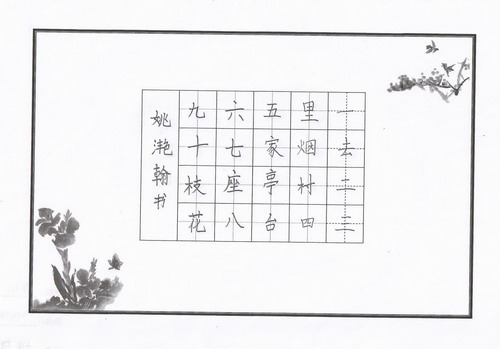 一去二三
里烟村四
五家亭台
六七座八
九十枝花
姚滟翰书